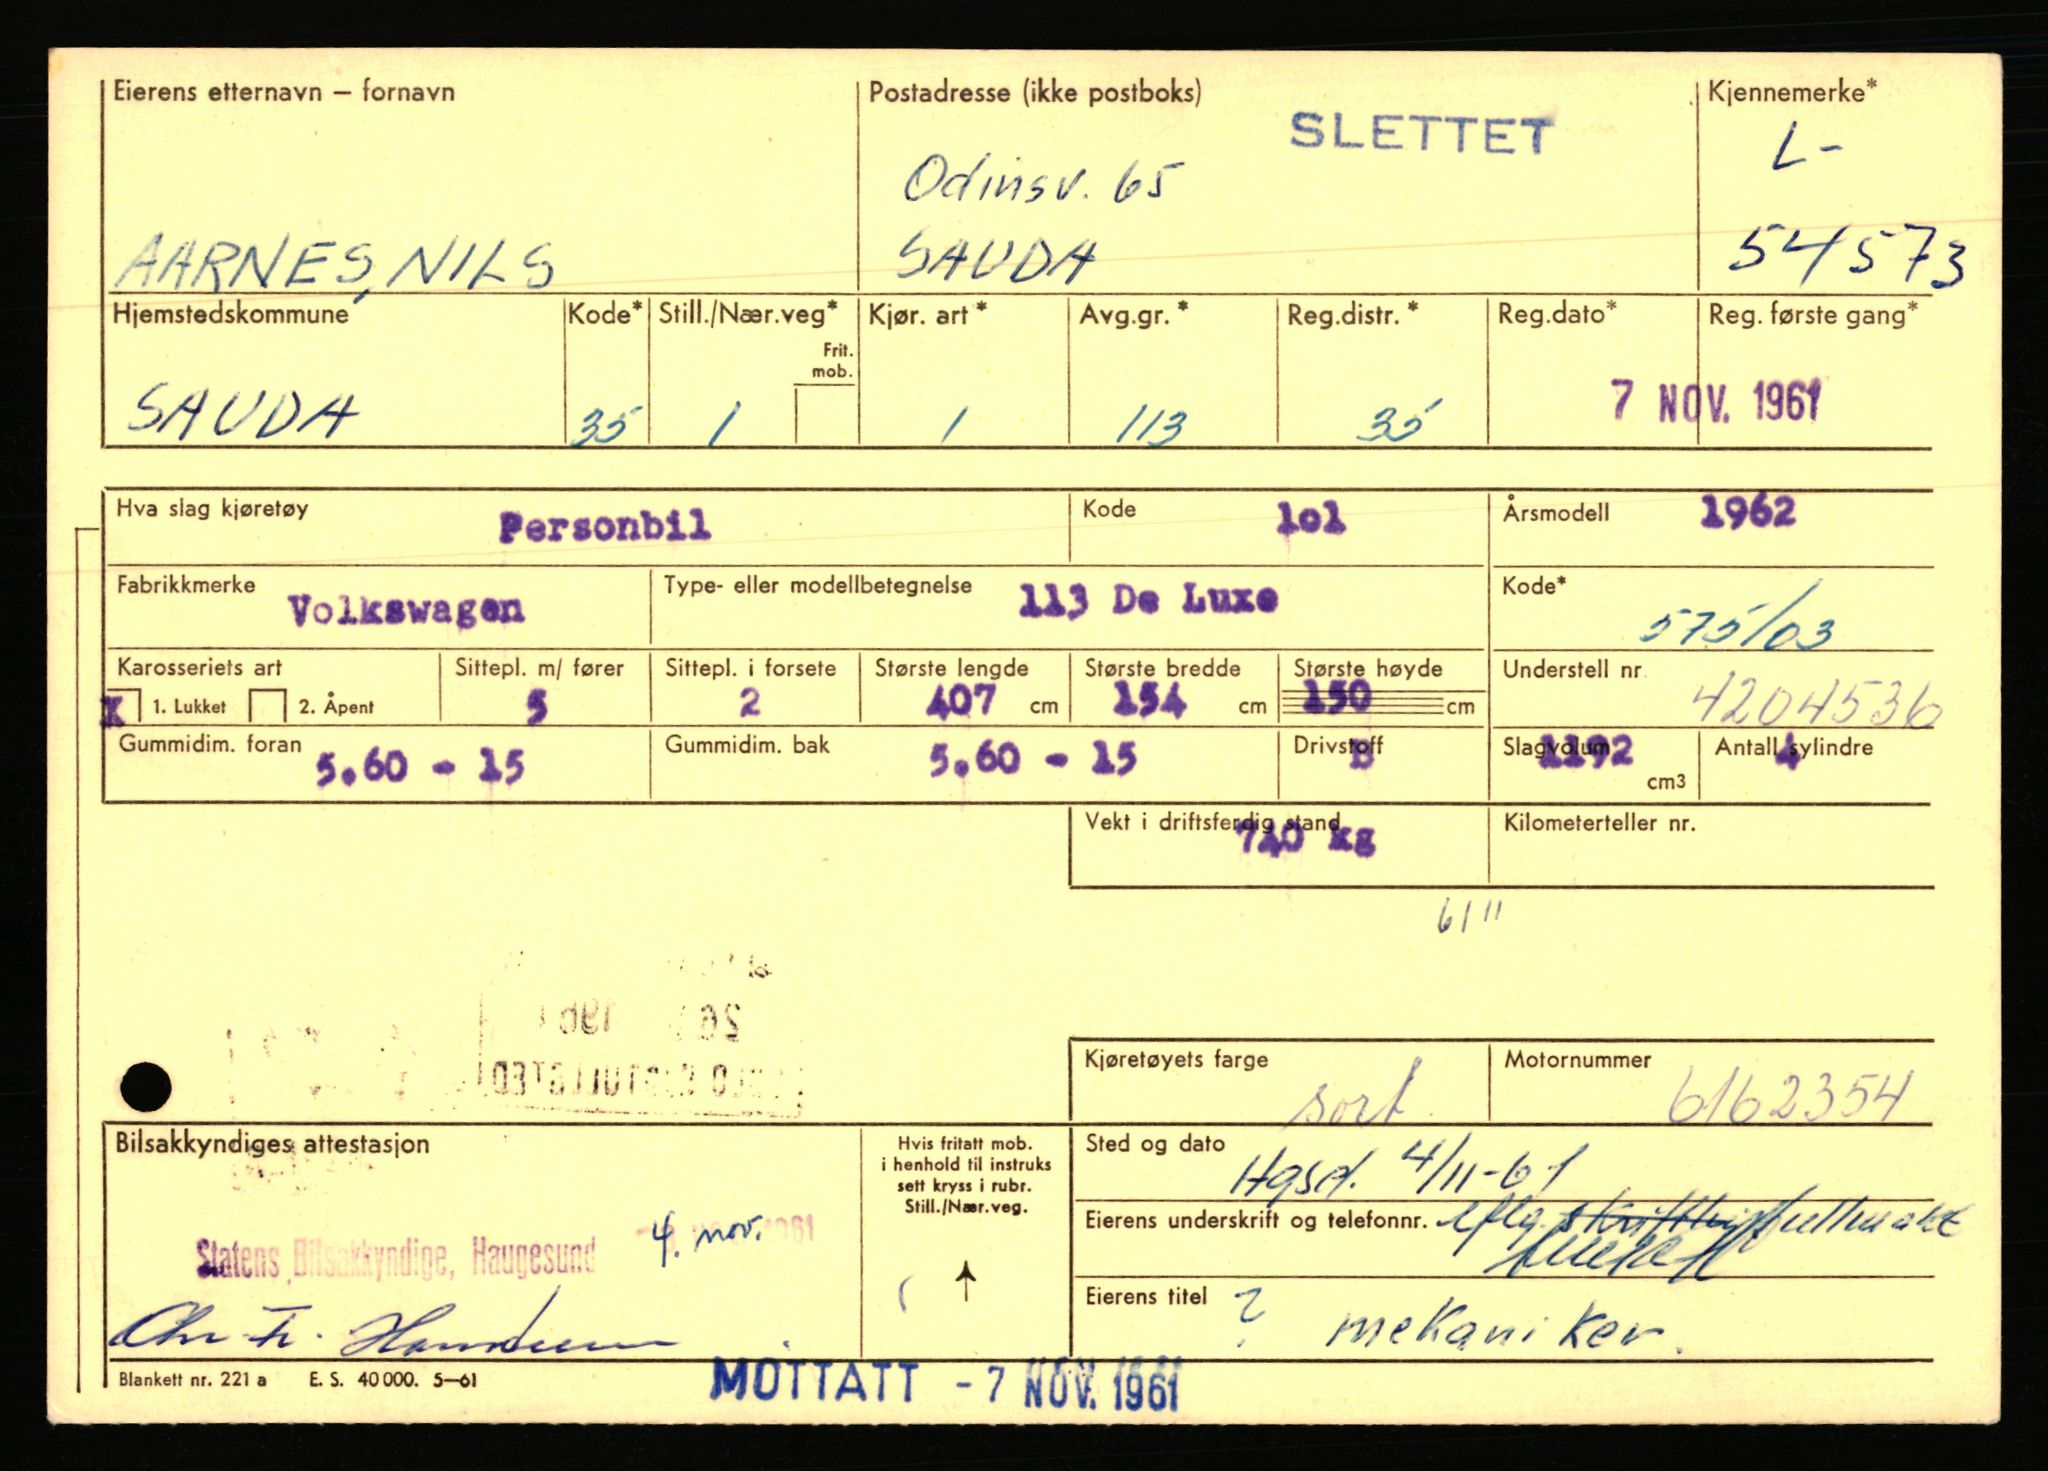 Eierens etternavn – fornavn
Postadresse (ikke postboks)
Kjennemerke*
SLETTET
L-
Odinsv. 65
AARNES, NILS
SAUDA
54573
Hjemstedskommune
Kode*
Still./Nær.veg*
Kjør. art*
Avg.gr.*
Reg.distr.*
Reg.dato*
Reg. første gang*
Frit.
mob.
SAUDA
35
1
1
113
35
7 NOV. 1961
Hva slag kjøretøy
Personbil
Kode
101
Årsmodell
1962
Fabrikkmerke
Volkswagen
Type- eller modellbetegnelse
113 De Luxe
Kode*
575/03
Karosseriets art
Sittepl. m/ fører
Sittepl. i forsete
Største lengde
Største bredde
Største høyde
Understell nr.
X
1. Lukket
2. Åpent
5
2
407 cm
154 cm
150 cm
4204536
Gummidim. foran
5.60 - 15
Gummidim. bak
5.60 - 15
Drivstoff
B
Slagvolum
1192
cm3
Antall sylindre
4
Vekt i driftsferdig stand
740 kg
Kilometerteller nr.
61"
Kjøretøyets farge
sort
Motornummer
6162354
Bilsakkyndiges attestasjon
Hvis fritatt mob.
i henhold til instruks
sett kryss i rubr.
Still./Nær.veg.
Sted og dato
Hgsd. 4/11-61
Eierens underskrift og telefonnr.
Statens Bilsakkyndige, Haugesund
4. nov. 1961
Eierens titel
? mekaniker.
Blankett nr. 221 a E. S. 40 000. 5–61
MOTTATT - 7 NOV. 1961